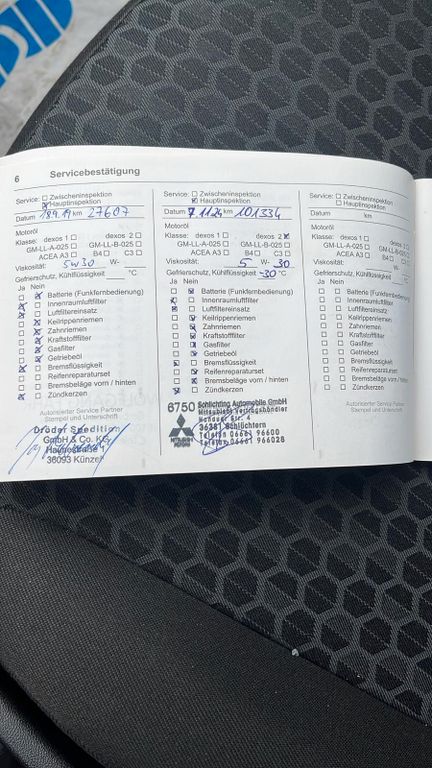 6 Servicebestätigung
Service: Zwischeninspektion
Hauptinspektion
Datum 18.9.19 km 27607
Motoröl
Klasse: dexos 1 dexos 2
GM-LL-A-025 GM-LL-B-025
ACEA A3 B4 C3
Viskosität: 5W30 W-
Gefrierschutz, Kühlflüssigkeit °C
Ja Nein
Batterie (Funkfernbedienung)
Innenraumluftfilter
Luftfiltereinsatz
Keilrippenriemen
Zahnriemen
Kraftstofffilter
Gasfilter
Getriebeöl
Bremsflüssigkeit
Reifenreparaturset
Bremsbeläge vorn / hinten
Zündkerzen
Autorisierter Service Partner
Stempel und Unterschrift
Spedition
GmbH & Co. KG
36093 Künzell
Service: Zwischeninspektion
Hauptinspektion
Datum 7.11.24 km 101334
Motoröl
Klasse: dexos 1 dexos 2
GM-LL-A-025 GM-LL-B-025
ACEA A3 B4 C3
Viskosität: 5 W- 30
Gefrierschutz, Kühlflüssigkeit -30 °C
Ja Nein
Batterie (Funkfernbedienung)
Innenraumluftfilter
Luftfiltereinsatz
Keilrippenriemen
Zahnriemen
Kraftstofffilter
Gasfilter
Getriebeöl
Bremsflüssigkeit
Reifenreparaturset
Bremsbeläge vorn / hinten
Zündkerzen
6750 Schlichting Automobile GmbH
Mitsubishi Vertragshändler
Str. 4
36381 Schlüchtern
Telefon 06661 966026
Telefax 06661 966028
MITSUBISHI
MOTORS
Service: Zwischeninspektion
Hauptinspektion
Datum km
Motoröl
Klasse: dexos 1 dexos 2
GM-LL-A-025 GM-LL-B-025
ACEA A3 B4 C3
Viskosität: W-
Gefrierschutz, Kühlflüssigkeit °C
Ja Nein
Batterie (Funkfernbedienung)
Innenraumluftfilter
Luftfiltereinsatz
Keilrippenriemen
Zahnriemen
Kraftstofffilter
Gasfilter
Getriebeöl
Bremsflüssigkeit
Reifenreparaturset
Bremsbeläge vorn / hinten
Zündkerzen
Autorisierter Service Partner
Stempel und Unterschrift